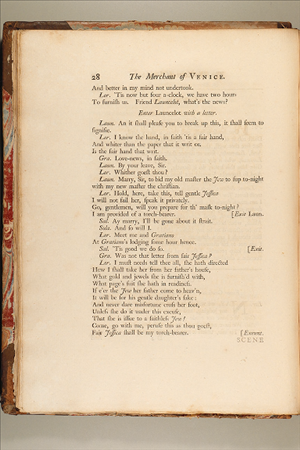 28 The Merchant of VENICE.
And better in my mind not undertook.
Lor. 'Tis now but four a-clock, we have two hours
To furnish us. Friend Launcelot, what's the news?
Enter Launcelot with a letter.
Laun. An it shall please you to break up this, it shall seem to
signifie.
Lor. I know the hand, in faith 'tis a fair hand,
And whiter than the paper that it writ on,
Is the fair hand that writ.
Gra. Love-news, in faith.
Laun. By your leave, Sir.
Lor. Whither goest thou?
Laun. Marry, Sir, to bid my old master the Jew to sup to-night
with my new master the christian.
Lor. Hold, here, take this, tell gentle Jessica
I will not fail her, speak it privately.
Go, gentlemen, will you prepare for this masque to-night?
I am provided of a torch-bearer. [Exit Laun.
Sal. Ay marry, I'll be gone about it strait.
Sola. And so will I.
Lor. Meet me and Gratiano
At Gratiano's lodging some hour hence.
Sal. 'Tis good we do so. [Exit.
Gra. Was not that letter from fair Jessica?
Lor. I must needs tell thee all, she hath directed
How I shall take her from her father's house,
What gold and jewels she is furnish'd with,
What page's suit she hath in readiness.
If e'er the Jew her father come to heav'n,
It will be for his gentle daughter's sake:
And never dare misfortune cross her foot,
Unless she do it under this excuse,
That she is issue to a faithless Jew!
Come, go with me, peruse this as thou goest,
Fair Jessica shall be my torch-bearer. [Exeunt.
SCENE